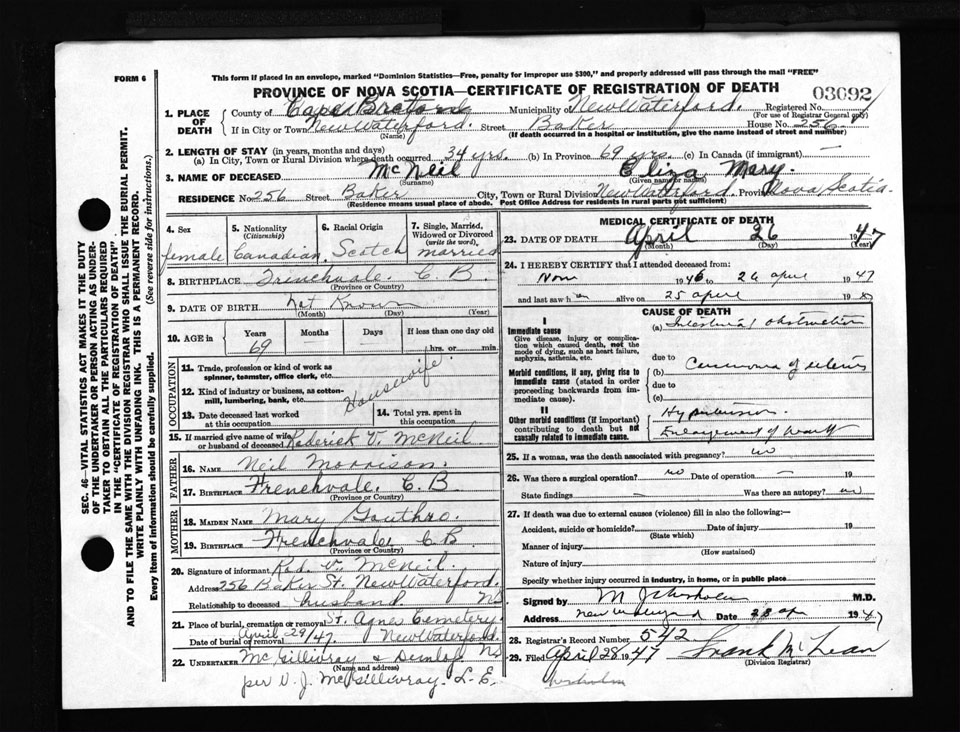 This form if placed in an envelope, marked "Dominion Statistics—Free, penalty for improper use $300," and properly addressed will pass through the mail "FREE"
FORM 6
PROVINCE OF NOVA SCOTIA—CERTIFICATE OF REGISTRATION OF DEATH
03092
1. PLACE OF DEATH
County of Cape Breton Municipality of New Waterford. Registered No.
(For use of Registrar General only)
If in City or Town New Waterford. Street Baker House No. 256
(Name) (If death occurred in a hospital or institution, give the name instead of street and number)
2. LENGTH OF STAY (in years, months and days)
(a) In City, Town or Rural Division where death occurred 34 yrs. (b) In Province 69 yrs. (c) In Canada (if immigrant) —
3. NAME OF DECEASED McNeil Eliza Mary.
(Surname) (Given name or names)
RESIDENCE No. 256 Street Baker City, Town or Rural Division New Waterford. Province Nova Scotia.
(Residence means usual place of abode. Post Office Address for residents in rural parts not sufficient)
4. Sex
female
5. Nationality
(Citizenship)
Canadian
6. Racial Origin
Scotch
7. Single, Married, Widowed or Divorced
(write the word)
married
8. BIRTHPLACE Frenchvale C. B.
(Province or Country)
9. DATE OF BIRTH Not Known
(Month) (Day) (Year)
10. AGE in
Years
69
Months
Days
If less than one day old
hrs. or min.
OCCUPATION
11. Trade, profession or kind of work as spinner, teamster, office clerk, etc.
12. Kind of industry or business, as cotton-mill, lumbering, bank, etc.
Housewife
13. Date deceased last worked at this occupation
14. Total yrs. spent in this occupation
15. If married give name of wife or husband of deceased Roderick V. McNeil
FATHER
16. NAME Neil Morrison.
17. BIRTHPLACE Frenchvale. C. B
(Province or Country)
MOTHER
18. MAIDEN NAME Mary Gouthro.
19. BIRTHPLACE Frenchvale C B.
(Province or Country)
20. Signature of informant Rod. V. McNeil.
Address 256 Baker St. New Waterford.
Relationship to deceased husband. NS
21. Place of burial, cremation or removal St. Agnes Cemetery
Date of burial or removal April 29/47. New Waterford.
22. UNDERTAKER McGillivray & Dunlop NS
(Name and address)
per V. J. McGillivray. L. E.
MEDICAL CERTIFICATE OF DEATH
23. DATE OF DEATH April 26 1947
(Month) (Day) (Year)
24. I HEREBY CERTIFY that I attended deceased from:
Nov 1946 to 26 april 1947
and last saw h alive on 25 april 19
CAUSE OF DEATH
I
Immediate cause
Give disease, injury or complication which caused death, not the mode of dying, such as heart failure, asphyxia, asthenia, etc.
(a) Intestinal obstruction
due to
Morbid conditions, if any, giving rise to immediate cause (stated in order proceeding backwards from immediate cause).
(b) Carcinoma of uterus
due to
(c)
II
Other morbid conditions (if important) contributing to death but not causally related to immediate cause.
Hypertension.
Enlargement of heart
25. If a woman, was the death associated with pregnancy? no
26. Was there a surgical operation? no Date of operation — 19
State findings — Was there an autopsy? no
27. If death was due to external causes (violence) fill in also the following:—
Accident, suicide or homicide? Date of injury 19
(State which)
Manner of injury
(How sustained)
Nature of injury
Specify whether injury occurred in industry, in home, or in public place
Signed by M J Chisholm M.D.
Address New Waterford Date 28 ap 1947
28. Registrar's Record Number 542
29. Filed April 28 1947 Frank McLean
(Division Registrar)
SEC. 46—VITAL STATISTICS ACT MAKES IT THE DUTY
OF THE UNDERTAKER OR PERSON ACTING AS UNDER-
TAKER TO OBTAIN ALL THE PARTICULARS REQUIRED
IN THE "CERTIFICATE OF REGISTRATION OF DEATH"
AND TO FILE THE SAME WITH THE DIVISION REGISTRAR WHO SHALL ISSUE THE BURIAL PERMIT.
WRITE PLAINLY WITH UNFADING INK. THIS IS A PERMANENT RECORD.
Every item of information should be carefully supplied. (See reverse side for instructions.)